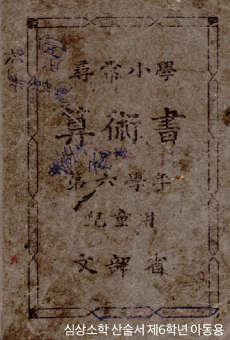 尋常小學
算術書
第六學年
兒童用
文部省
심상소학 산술서 제6학년 아동용